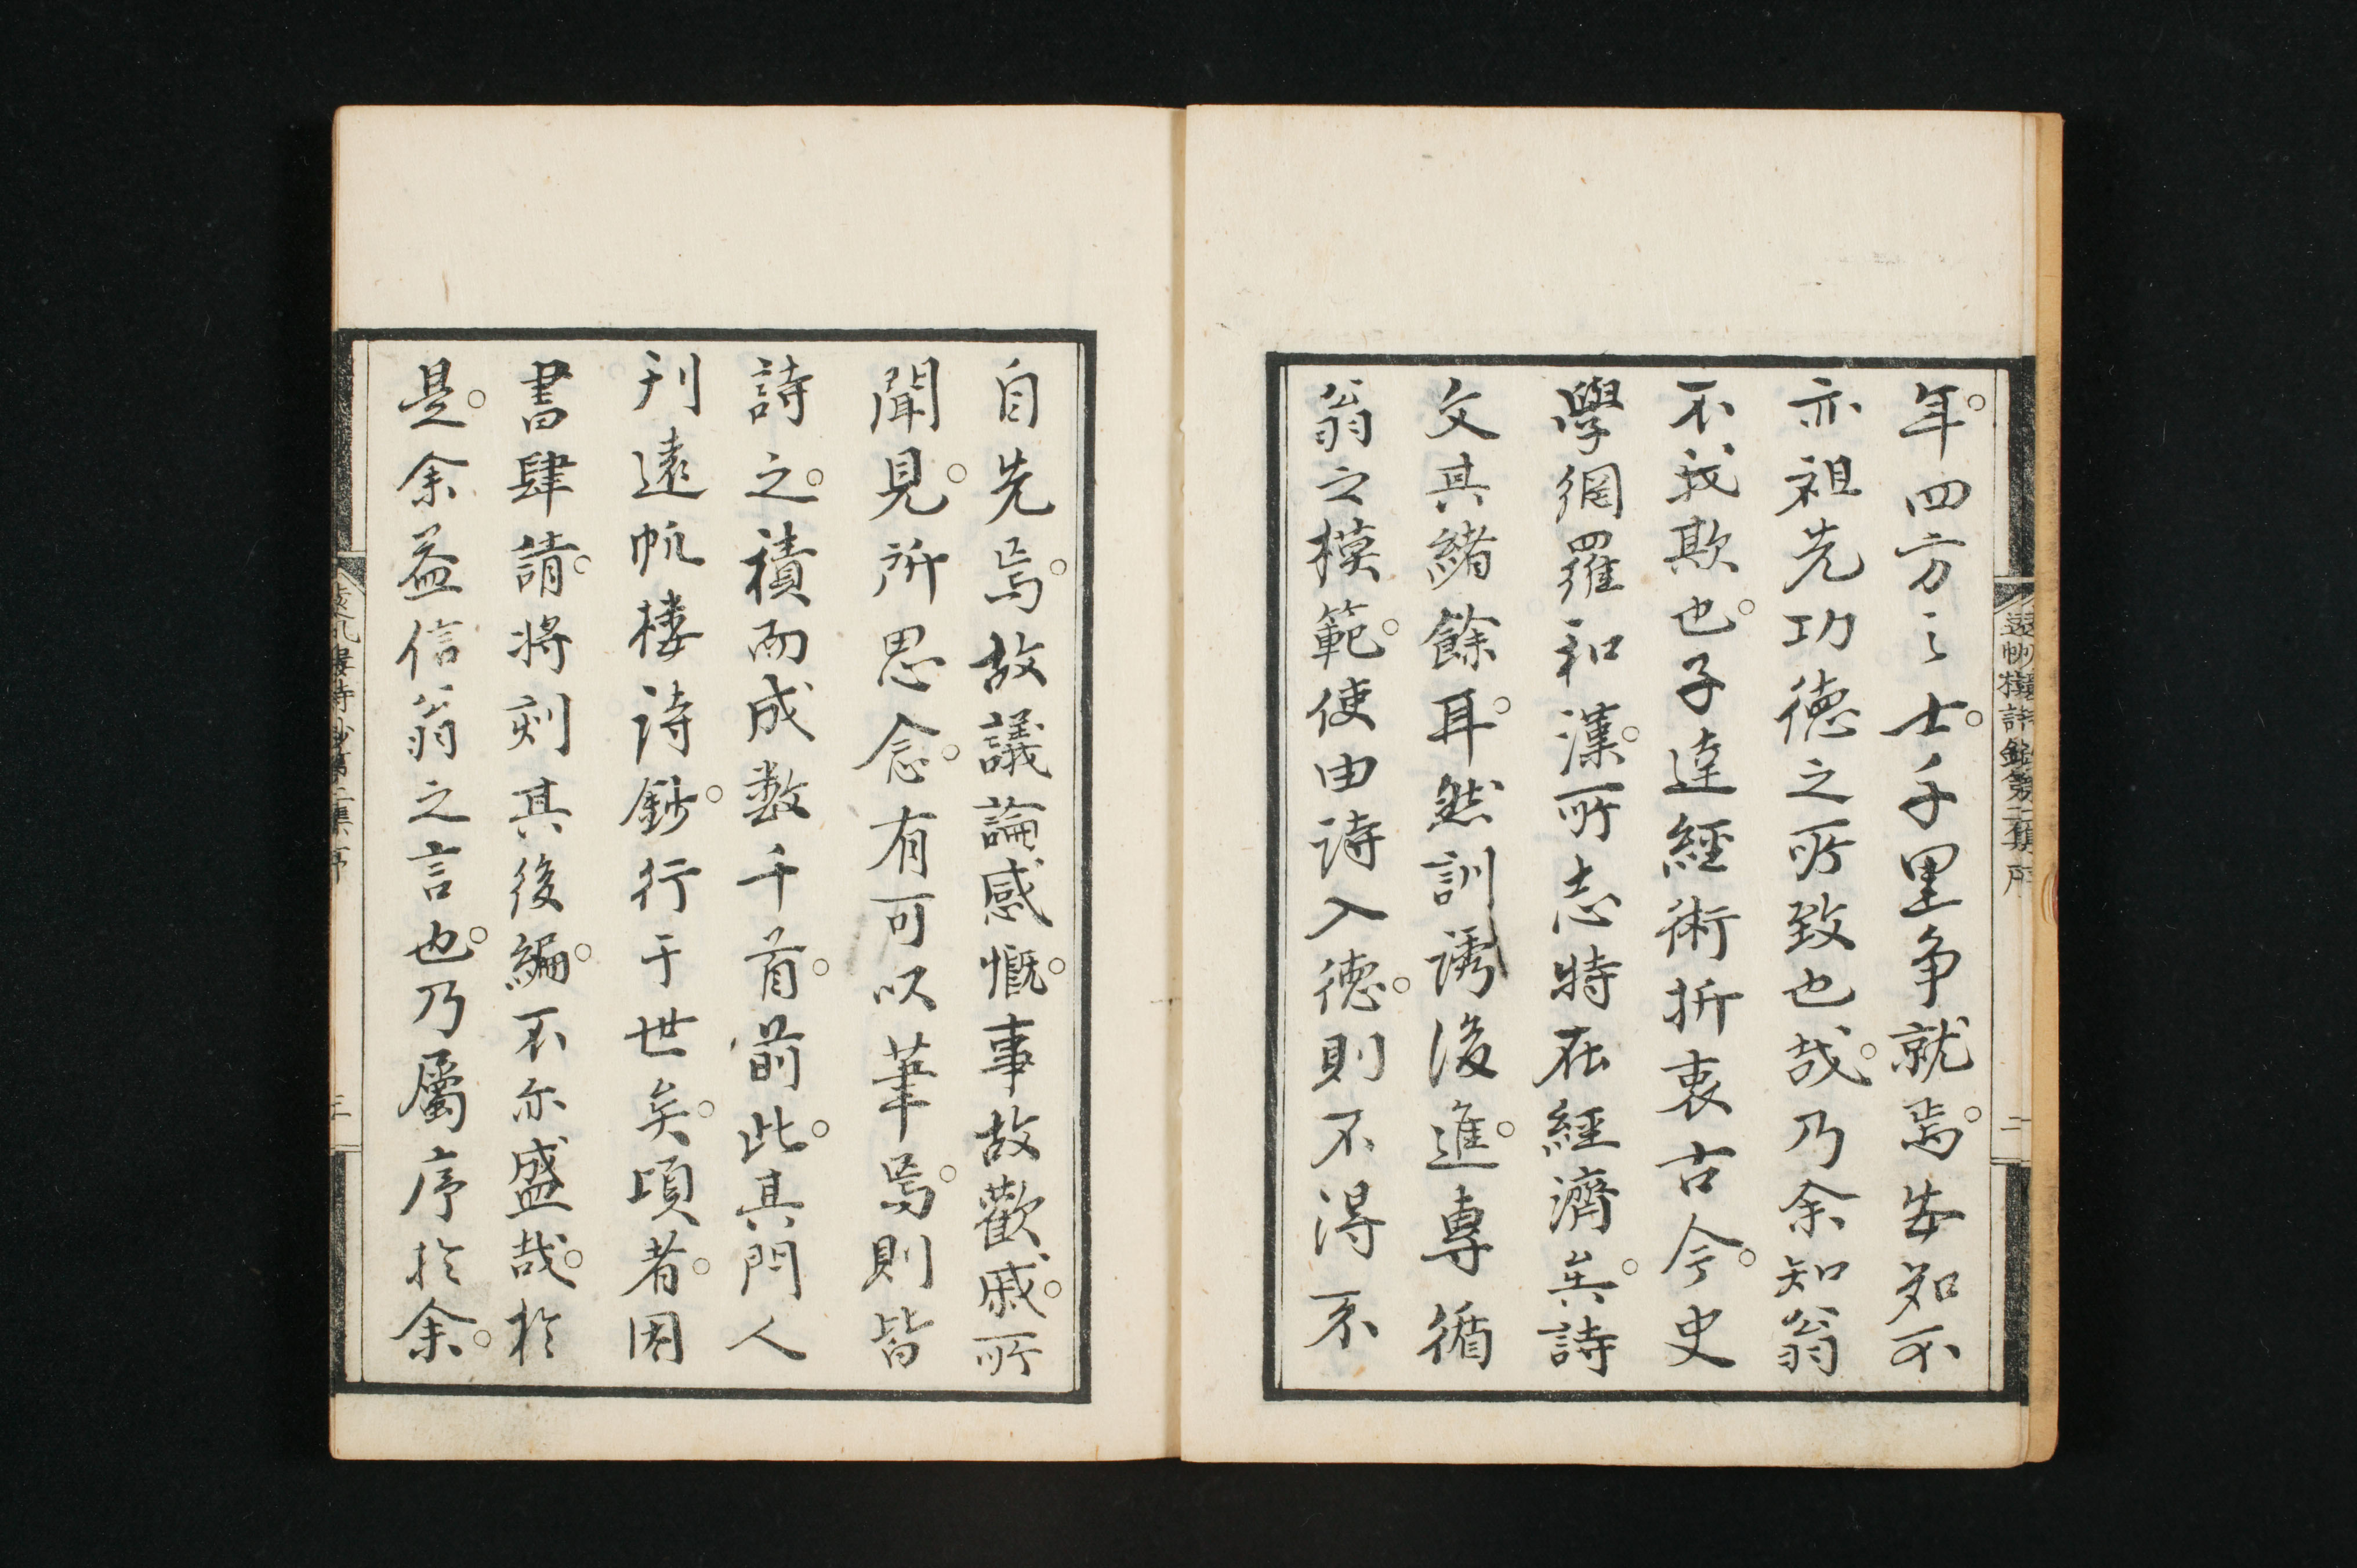 年。四方之士。千里争就焉。安知不
亦祖先功徳之所致也哉。乃余知翁
不我欺也。子達經術折衷古今。史
學網羅和漢。所志特在經濟矣。詩
文其緒餘耳。然訓誘後進。専循
翁之模範。使由詩入徳。則不得不
自先焉。故議論感慨。事故歡戚。所
聞見。所思念。有可以筆焉。則皆
詩之。積而成数千首。前此。其門人
刊遠帆楼詩鈔。行于世矣。頃者。因
書肆請。将刻其後編。不亦盛哉。於
是。余益信翁之言也。乃屬序於余。
遠帆樓詩鈔第二集序
二
遠帆樓詩鈔第二集序
三